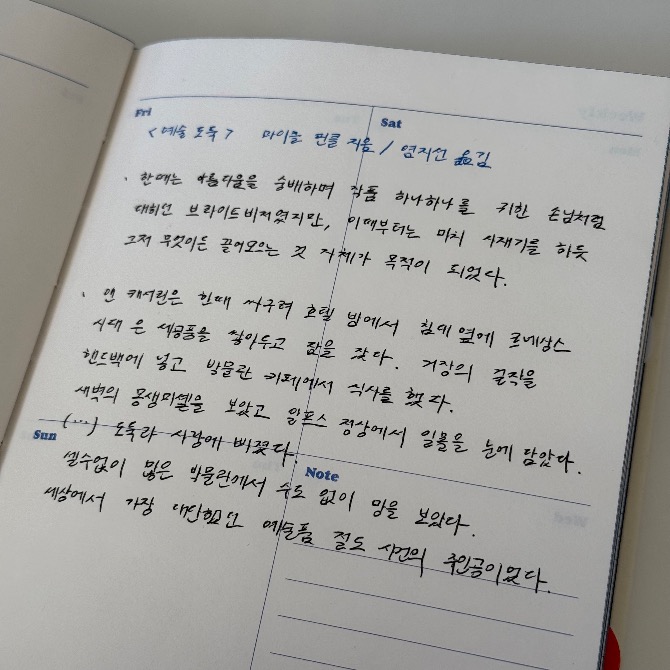 Fri
Sat
<예술 도둑> 마이클 핀클 지음 / 염지선 옮김
· 한때는 아름다움을 숭배하며 작품 하나하나를 귀한 손님처럼
대하던 브라이트비저였지만, 이때부터는 마치 사재기를 하듯
그저 무엇이든 끌어모으는 것 자체가 목적이 되었다.
· 앤 캐서린은 한때 싸구려 호텔 방에서 침대 옆에 르네상스
시대 은 세공품을 쌓아두고 잠을 잤다. 거장의 걸작을
핸드백에 넣고 박물관 카페에서 식사를 했다.
새벽의 몽생미셸을 보았고 알프스 정상에서 일몰을 눈에 담았다.
(...) 도둑과 사랑에 빠졌다.
Sun
셀수없이 많은 박물관에서 수도 없이 망을 보았다.
Note
세상에서 가장 대단했던 예술품 절도 사건의 주인공이었다.